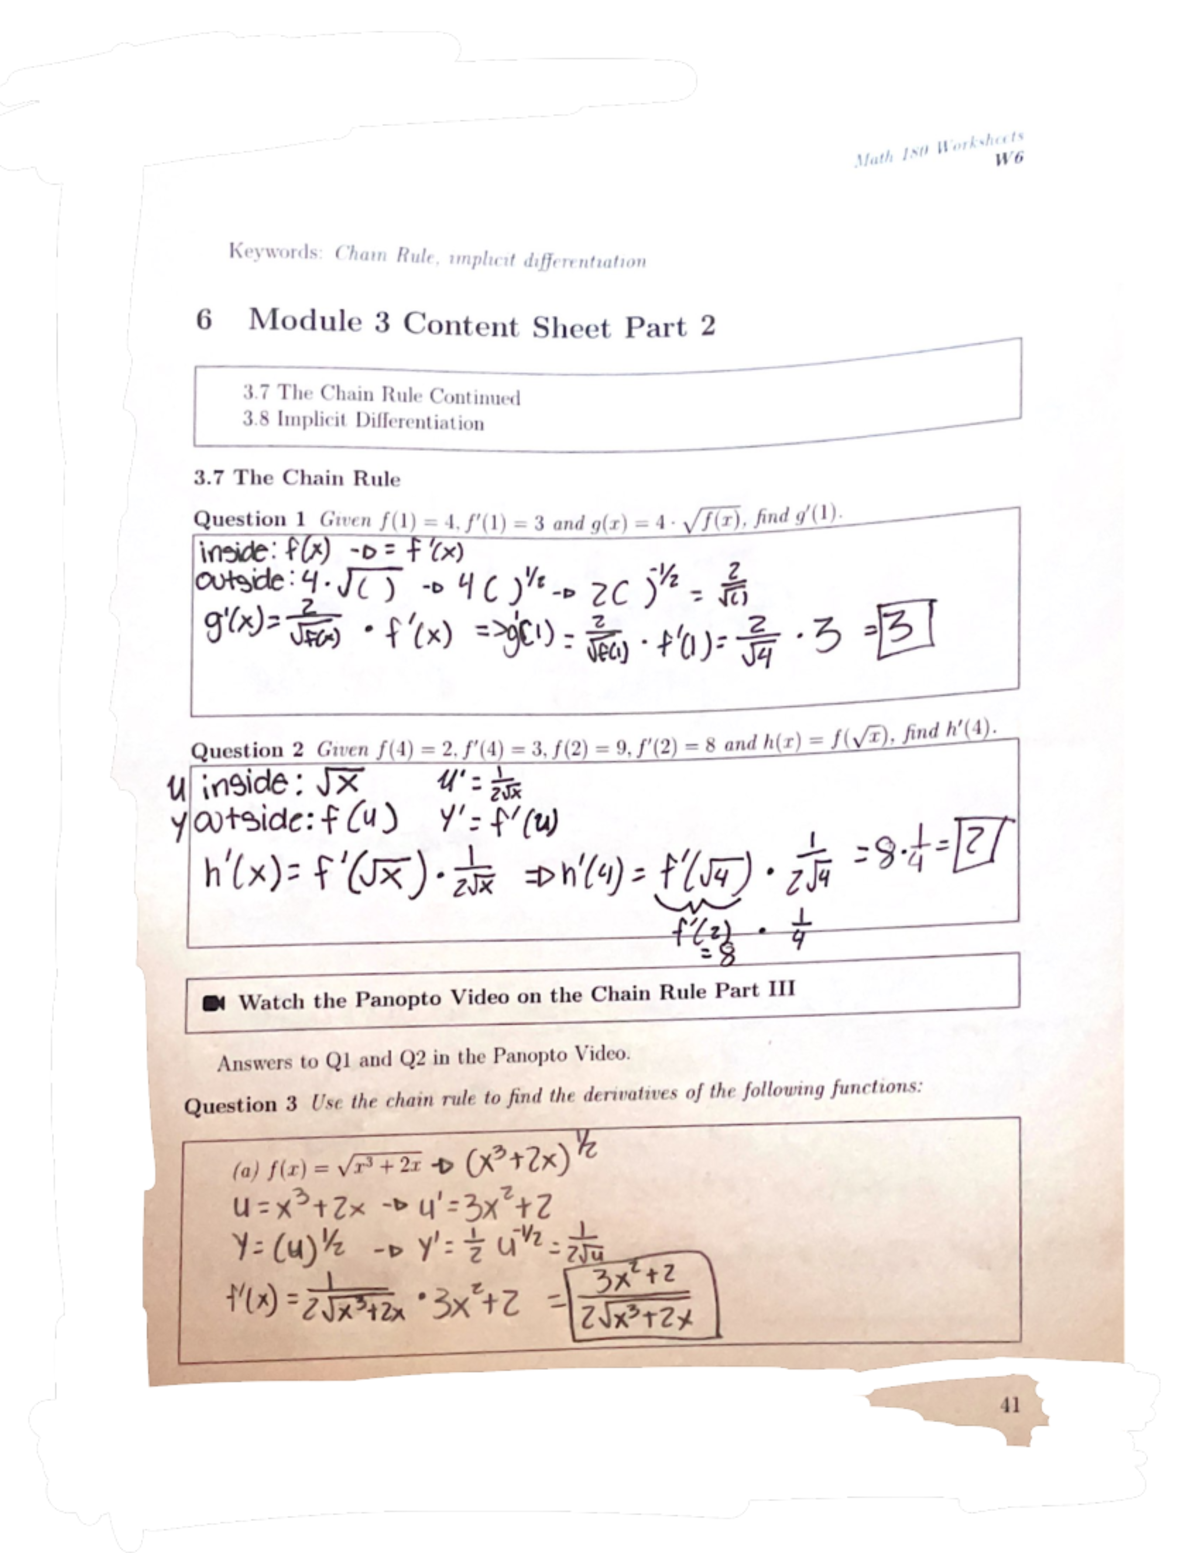 Math 180 Worksheets
W6
Keywords: Chain Rule, implicit differentiation
6 Module 3 Content Sheet Part 2
3.7 The Chain Rule Continued
3.8 Implicit Differentiation
3.7 The Chain Rule
Question 1 Given f(1) = 4, f'(1) = 3 and g(x) = 4 · √f(x), find g'(1).
inside: f(x) → = f'(x)
outside: 4·√( ) → 4( )^1/2 → 2( )^-1/2 = 2/√( )
g'(x) = 2/√f(x) · f'(x) => g'(1) = 2/√f(1) · f'(1) = 2/√4 · 3 = 3
Question 2 Given f(4) = 2, f'(4) = 3, f(2) = 9, f'(2) = 8 and h(x) = f(√x), find h'(4).
u inside: √x u' = 1/2√x
y outside: f(u) y' = f'(u)
h'(x) = f'(√x) · 1/2√x ⇒ h'(4) = f'(√4) · 1/2√4 = 8·1/4 = 2
f'(2) · 1/4
= 8
Watch the Panopto Video on the Chain Rule Part III
Answers to Q1 and Q2 in the Panopto Video.
Question 3 Use the chain rule to find the derivatives of the following functions:
(a) f(x) = √x³ + 2x → (x³+2x)^1/2
u = x³+2x → u' = 3x²+2
y = (u)^1/2 → y' = 1/2 u^-1/2 = 1/2√u
f'(x) = 1/2√x³+2x · 3x²+2 = 3x²+2/2√x³+2x
41